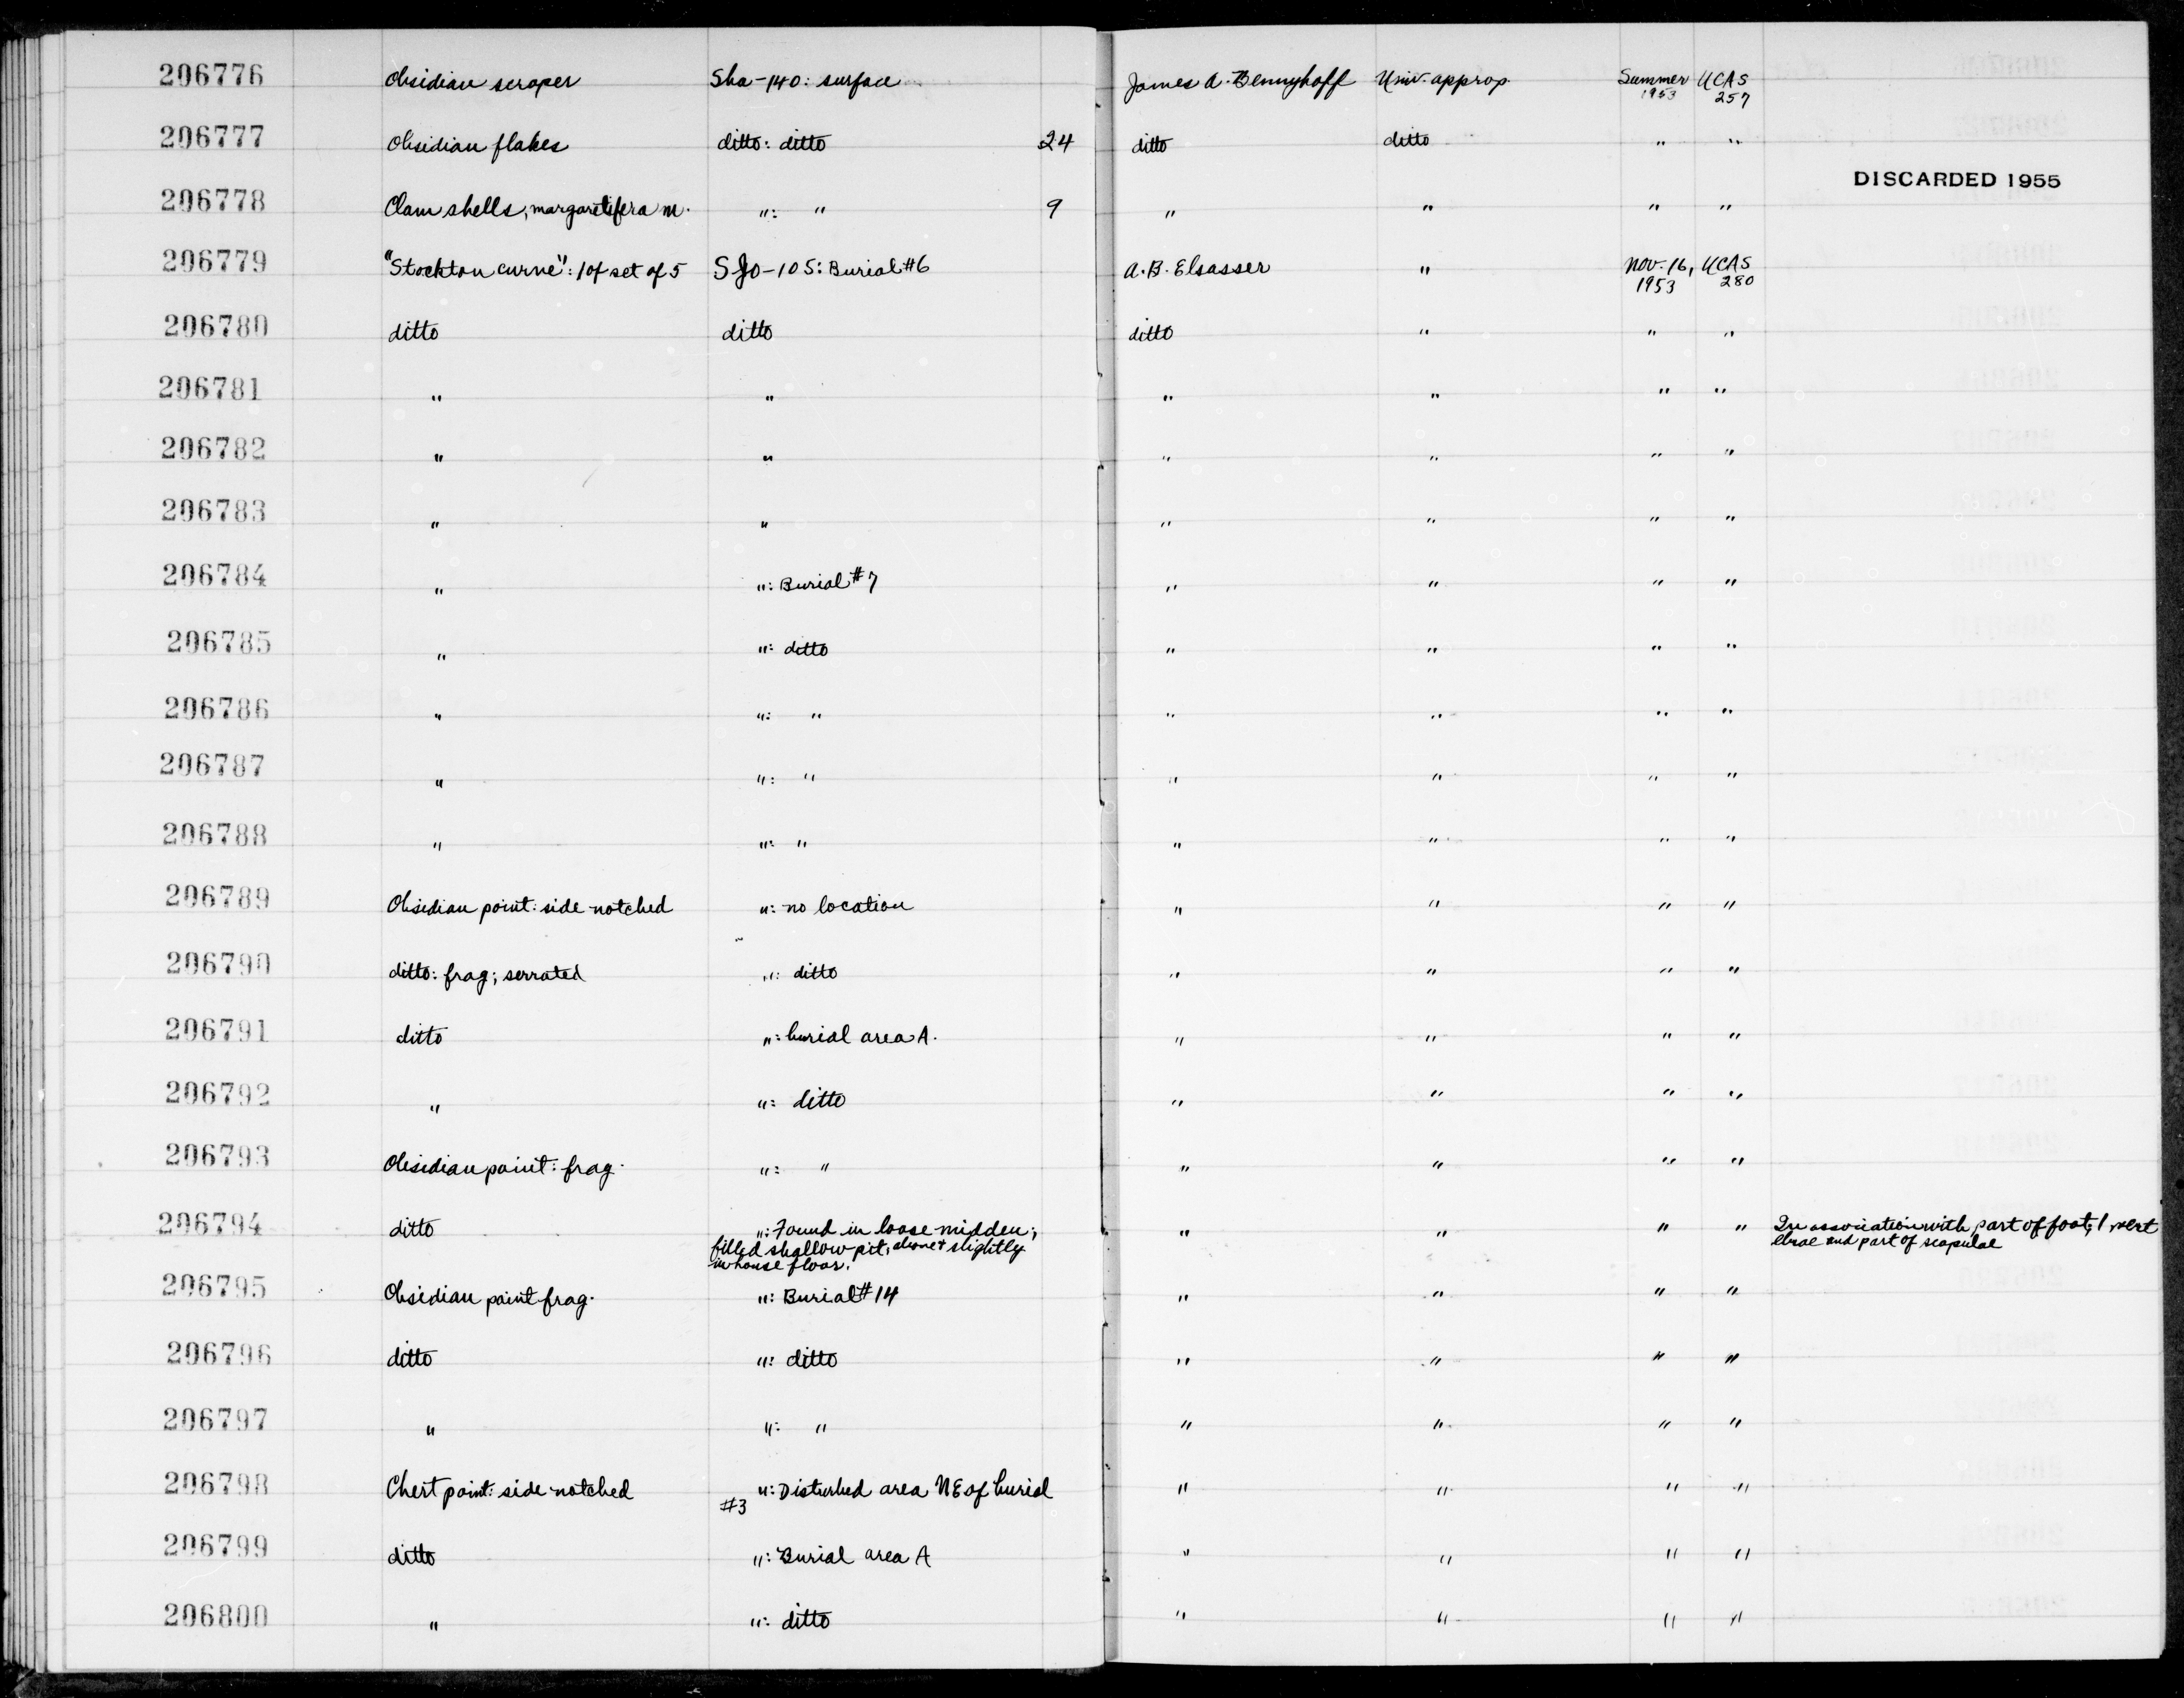 206776 Obsidian scraper Sha-140: surface James A. Bennyhoff Univ. approp. Summer 1953 UCAS 257
206777 Obsidian flakes ditto: ditto 24 ditto ditto " "
DISCARDED 1955
206778 Clam shells; margaretifera m. ": " 9 " " " "
206779 "Stockton curve": 1 of set of 5 SJo-105: Burial #6 A.B. Elsasser " Nov. 16, 1953 UCAS 280
206780 ditto ditto ditto " " "
206781 " " " " " "
206782 " " " " " "
206783 " " " " " "
206784 " ": Burial #7 " " " "
206785 " ": ditto " " " "
206786 " ": " " " " "
206787 " ": " " " " "
206788 " ": " " " " "
206789 Obsidian point: side-notched ": no location " " " "
206790 ditto: frag; serrated ": ditto " " " "
206791 ditto ": burial area A. " " " "
206792 " ": ditto " " " "
206793 Obsidian point: frag. ": " " " " "
206794 ditto ": Found in loose midden; " " " " In association with part of foot, 1 vert
filled shallow pit, above + slightly ebrae and part of scapulae
in house floor.
206795 Obsidian point frag. ": Burial #14 " " " "
206796 ditto ": ditto " " " "
206797 " ": " " " " "
206798 Chert point: side-notched ": Disturbed area NE of burial " " " "
#3
206799 ditto ": Burial area A " " " "
206800 " ": ditto " " " "